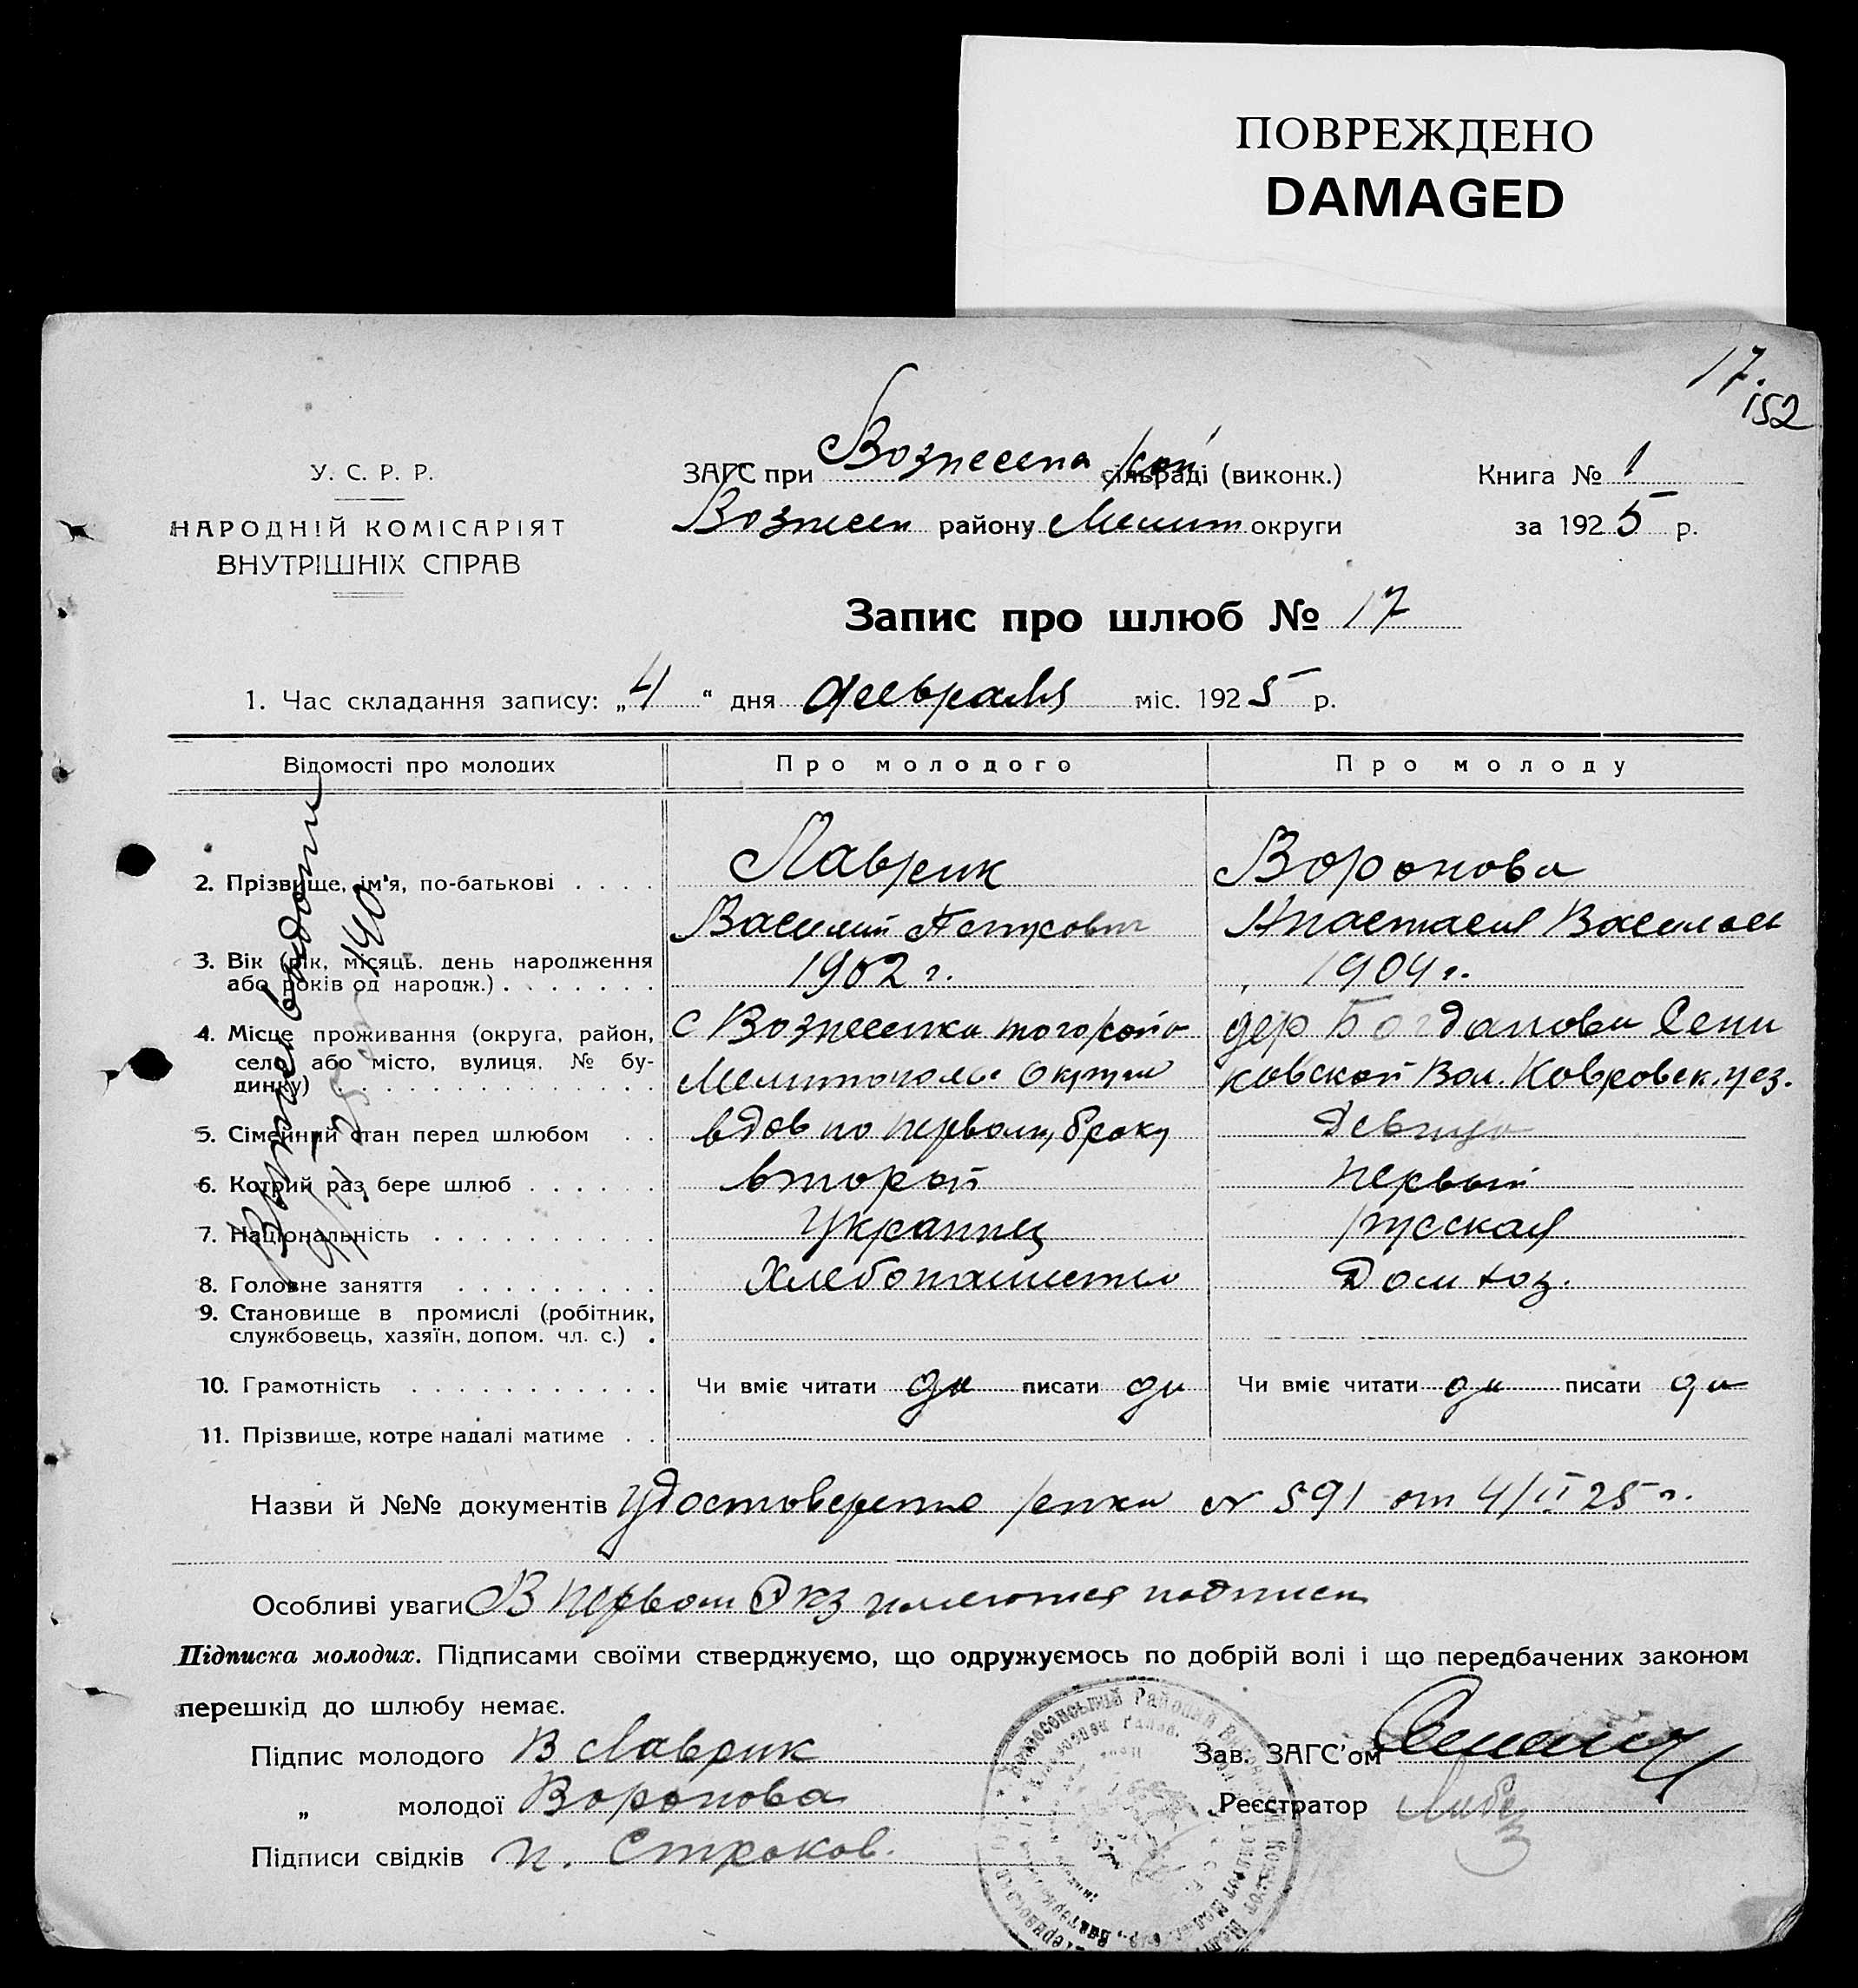 ПОВРЕЖДЕНО
DAMAGED
17.
152
У. С. Р. Р.
НАРОДНІЙ КОМІСАРІЯТ
ВНУТРІШНІХ СПРАВ
ЗАГС при Вознесенск рай сільраді (виконк.)
Вознесен району Мелит округи
Книга № 1
за 1925 р.
Запис про шлюб № 17
1. Час складання запису: „4" дня февраля міс. 1925 р.
Відомості про молодих Про молодого Про молоду
2. Прізвище, ім'я, по-батькові . . . . Лаврик Воронова
Василий Петрович Анастасия Васильев
3. Вік (рік, місяць, день народження
або років од народж.) . . . . . . . 1902 г. 1904 г.
4. Місце проживання (округа, район, с Вознесенка того района дер Богданова Сени
село або місто, вулиця, № бу-
динку) . . . . . . . . . . . . . . Мелитополь. Округи ковской Вол. Ковровск. уез.
5. Сімейний стан перед шлюбом . . вдов по первому браку Девица
6. Котрий раз бере шлюб . . . . . . второй первый
7. Національність . . . . . . . . . . украинец русская
8. Головне заняття . . . . . . . . . Хлебопашество Дом хоз.
9. Становище в промислі (робітник,
службовець, хазяїн, допом. чл. с.) .
10. Грамотність . . . . . . . . . . . Чи вміє читати да писати да Чи вміє читати да писати да
11. Прізвище, котре надалі матиме . .
Назви й №№ документів Удостоверение № 591 от 4/II 25 г.
Особливі уваги В первом Экз имеются подписи
Підписка молодих. Підписами своїми стверджуємо, що одружуємось по добрій волі і що передбачених законом
перешкід до шлюбу немає.
Підпис молодого В Лаврик
Зав. ЗАГС'ом
„ молодої Воронова
Реєстратор
Підписи свідків П. Строков.